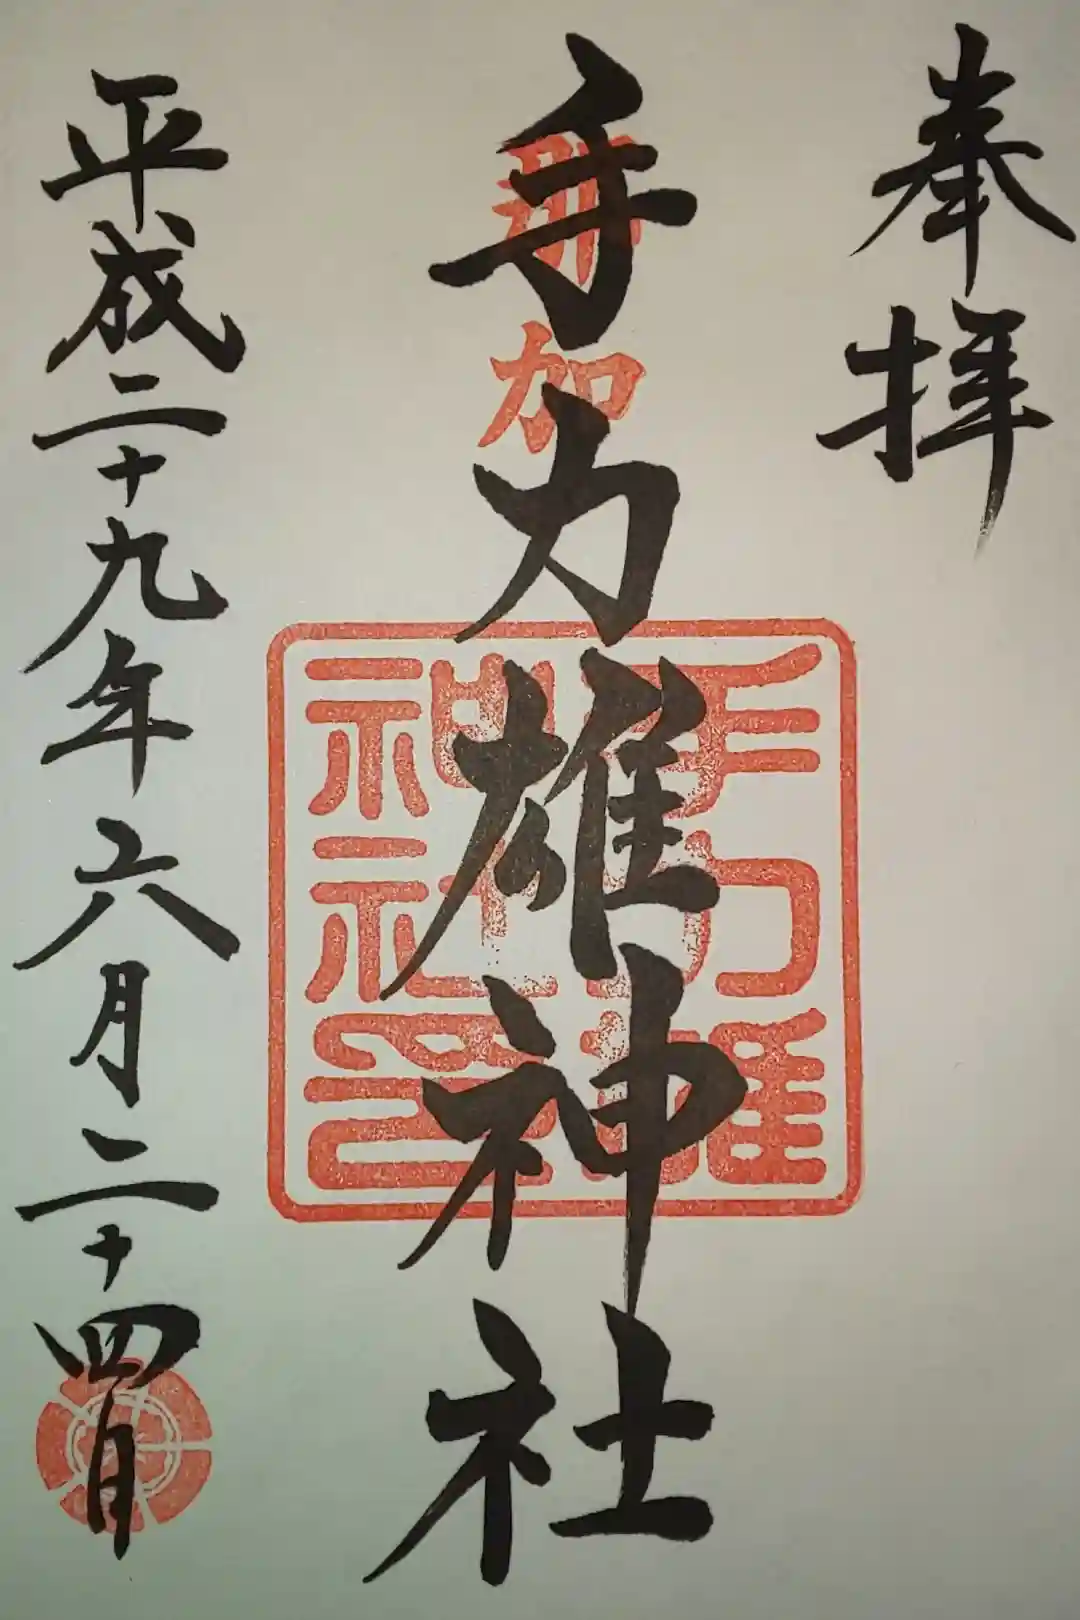 奉拝
那加
手力雄神社
手力雄
神社印
平成二十九年六月二十四日